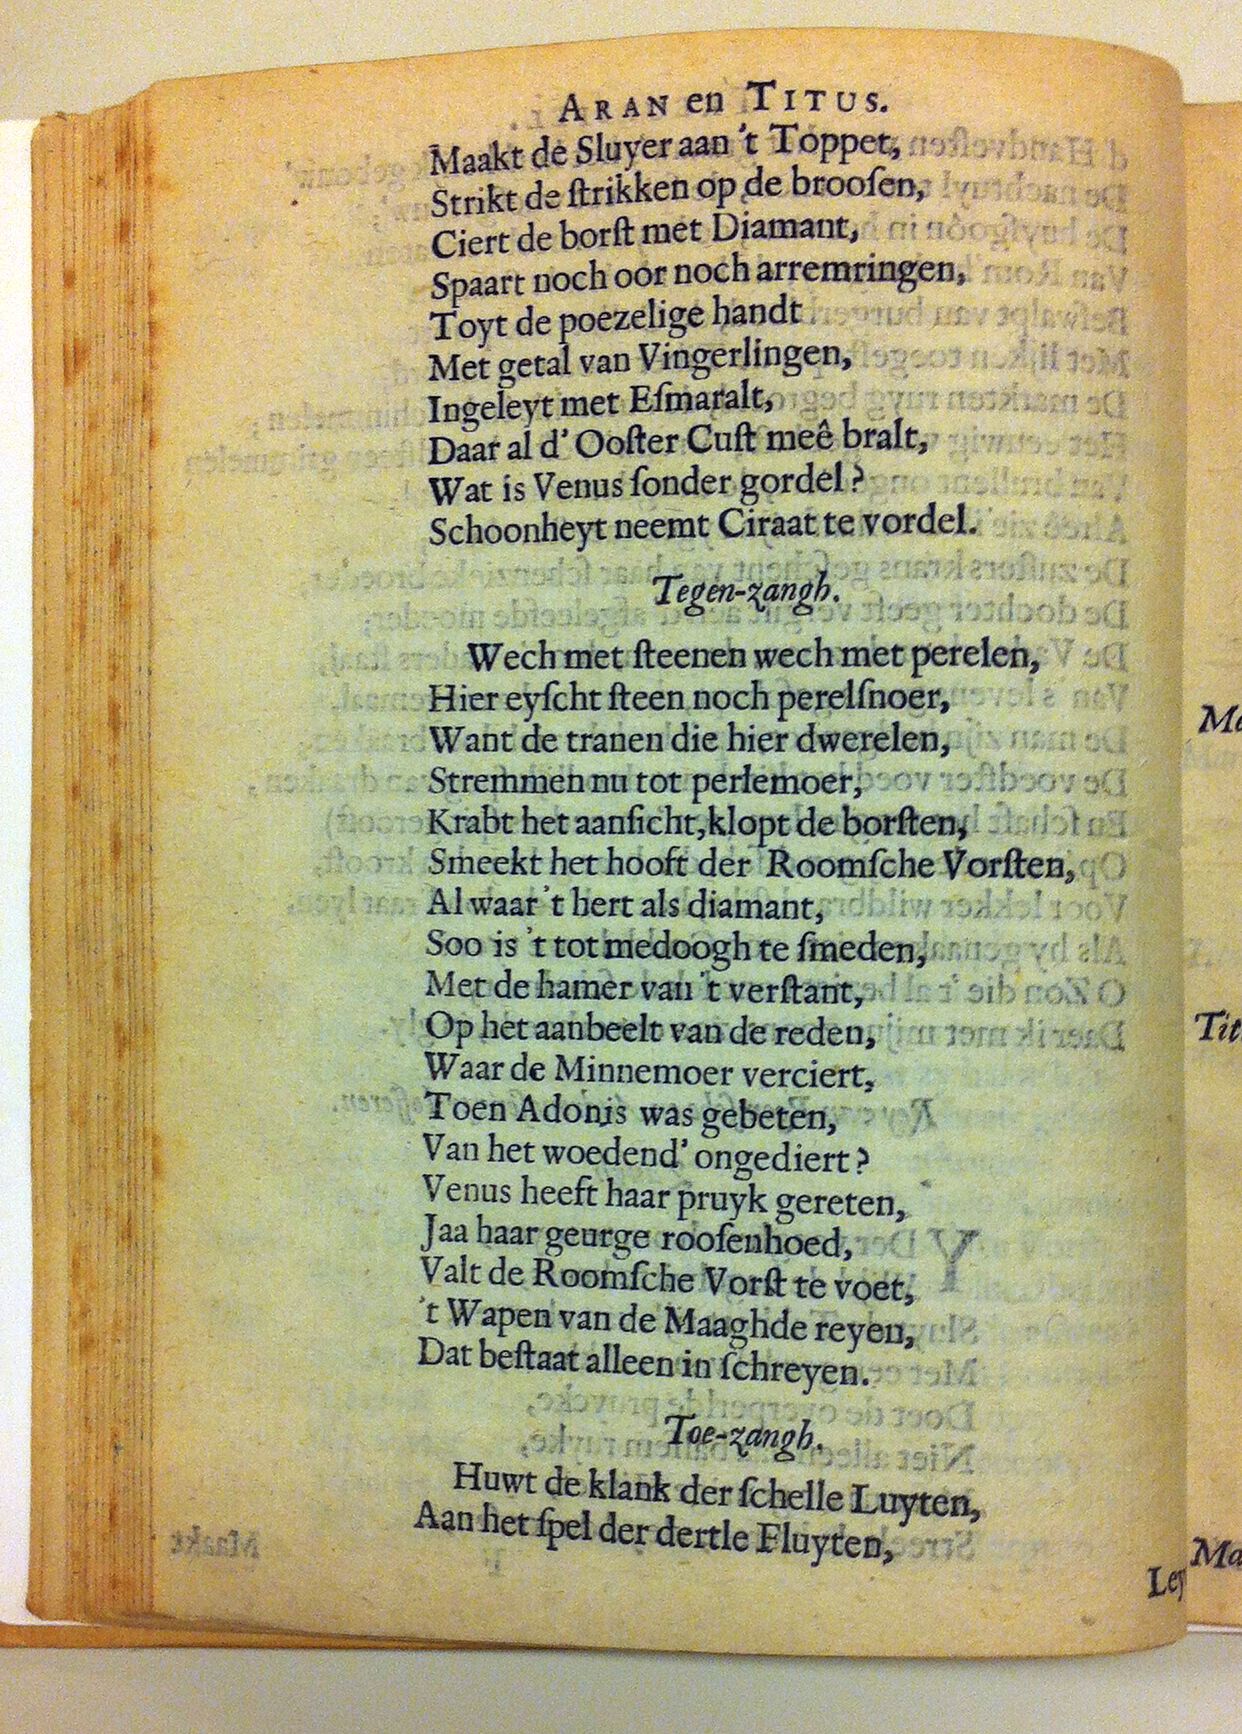 ARAN en TITUS.
Maakt de Sluyer aan 't Toppet,
Strikt de ſtrikken op de brooſen,
Ciert de borſt met Diamant,
Spaart noch oor noch arremringen,
Toyt de poezelige handt
Met getal van Vingerlingen,
Ingeleyt met Eſmaralt,
Daar al d' Ooſter Cuſt meê bralt,
Wat is Venus ſonder gordel?
Schoonheyt neemt Ciraat te vordel.
Tegen-zangh.
Wech met ſteenen wech met perelen,
Hier eyſcht ſteen noch perelſnoer,
Want de tranen die hier dwerelen,
Stremmen nu tot perlemoer,
Krabt het aanſicht, klopt de borſten,
Smeekt het hooft der Roomſche Vorſten,
Al waar 't hert als diamant,
Soo is 't tot medoogh te ſmeden,
Met de hamer van 't verſtant,
Op het aanbeelt van de reden,
Waar de Minnemoer verciert,
Toen Adonis was gebeten,
Van het woedend' ongediert?
Venus heeft haar pruyk gereten,
Jaa haar geurge rooſenhoed,
Valt de Roomſche Vorſt te voet,
't Wapen van de Maaghde reyen,
Dat beſtaat alleen in ſchreyen.
Toe-zangh.
Huwt de klank der ſchelle Luyten,
Aan het ſpel der dertle Fluyten,
Ley